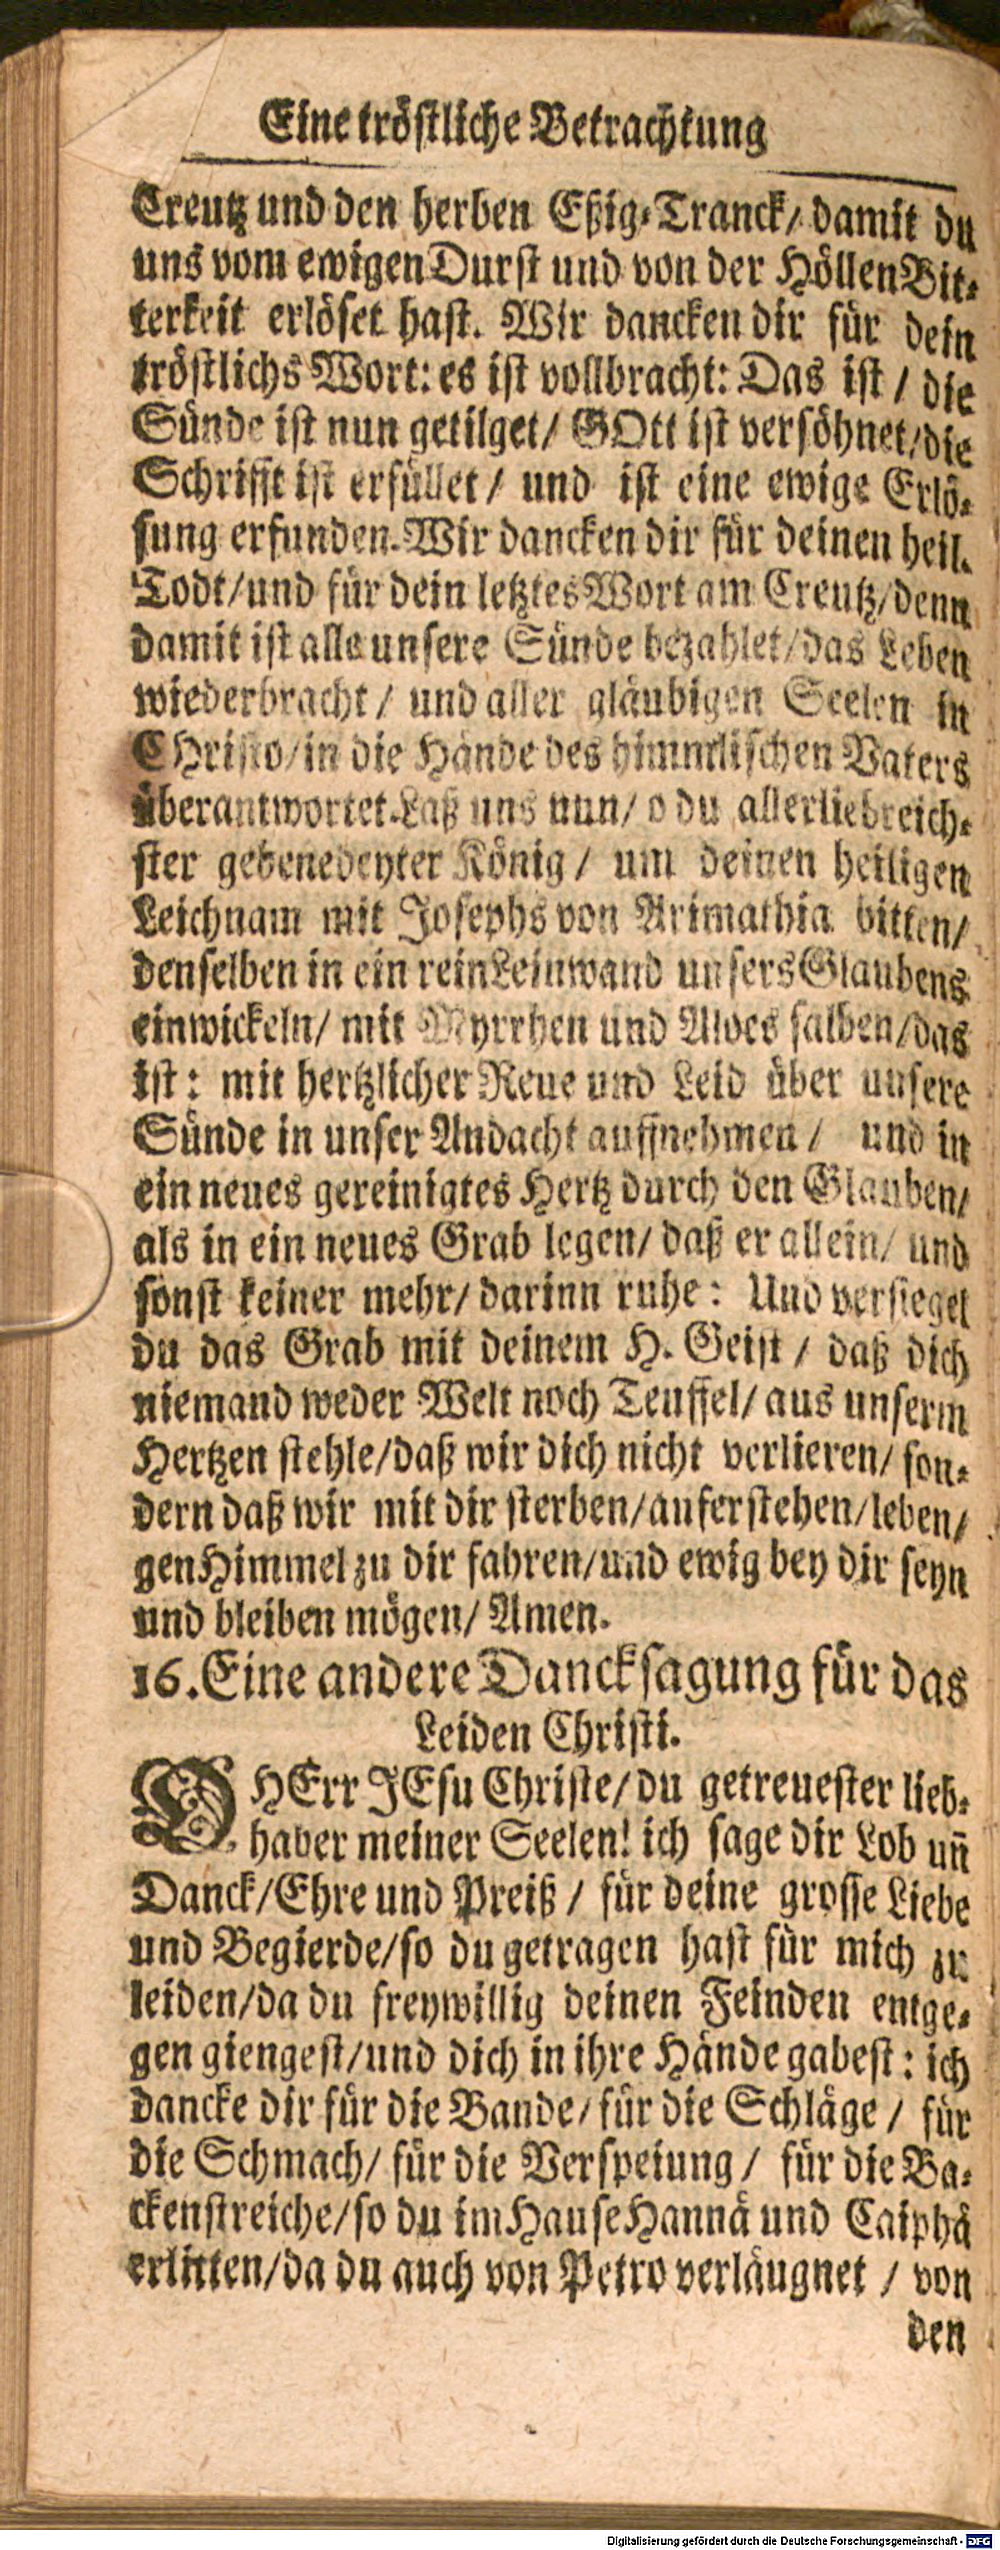 Eine tröstliche Betrachtung
Creutz und den herben Eßig-Tranck/ damit du
uns vom ewigen Durst und von der Höllen Bit-
terkeit erlöset hast. Wir dancken dir für dein
tröstlichs Wort: es ist vollbracht: Das ist / die
Sünde ist nun getilget/ GOtt ist versöhnet/die
Schrifft ist erfüllet / und ist eine ewige Erlö-
sung erfunden. Wir dancken dir für deinen heil.
Todt/und für dein letztes Wort am Creutz/denn
damit ist alle unsere Sünde bezahlet/das Leben
wiederbracht / und aller gläubigen Seelen in
CHristo/in die Hände des himmlischen Vaters
überantwortet. Laß uns nun/ o du allerliebreich-
ster gebenedeyter König / um deinen heiligen
Leichnam mit Josephs von Arimathia bitten/
denselben in ein rein Leinwand unsers Glaubens
einwickeln/ mit Myrrhen und Aloes salben/das
ist: mit hertzlicher Reue und Leid über unsere
Sünde in unser Andacht auffnehmen / und in
ein neues gereinigtes Hertz durch den Glauben/
als in ein neues Grab legen/ daß er allein/ und
sonst keiner mehr/ darinn ruhe: Und versiegel
du das Grab mit deinem H. Geist / daß dich
niemand weder Welt noch Teuffel/ aus unserm
Hertzen stehle/daß wir dich nicht verlieren/ son-
dern daß wir mit dir sterben/auferstehen/leben/
gen Himmel zu dir fahren/und ewig bey dir seyn
und bleiben mögen/ Amen.
16. Eine andere Dancksagung für das
Leiden Christi.
O HErr JEsu Christe/ du getreuester lieb-
haber meiner Seelen! ich sage dir Lob un̄
Danck/Ehre und Preiß / für deine grosse Liebe
und Begierde/so du getragen hast für mich zu
leiden/da du freywillig deinen Feinden entge-
gen giengest/und dich in ihre Hände gabest: ich
dancke dir für die Bande/ für die Schläge / für
die Schmach/ für die Verspeiung / für die Ba-
ckenstreiche/so du im Hause Hannä und Caiphä
erlitten/da du auch von Petro verläugnet / von
den
Digitalisierung gefördert durch die Deutsche Forschungsgemeinschaft - DFG